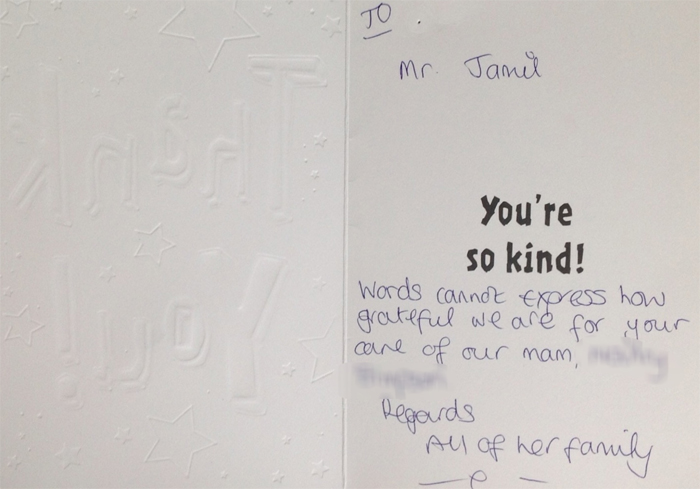 Thank
You!
TO
Mr. Jamil
You're
so kind!
Words cannot express how
grateful we are for your
care of our mam,
Regards
All of her family